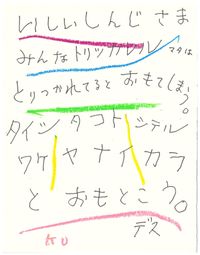 いしいしんじ さま
みんなトリッカルル マタは
とりつかれてると おもてしまう。
タイツ タコト シテル
ワケ ヤ ナイ カラ
と おもとこう。
デス